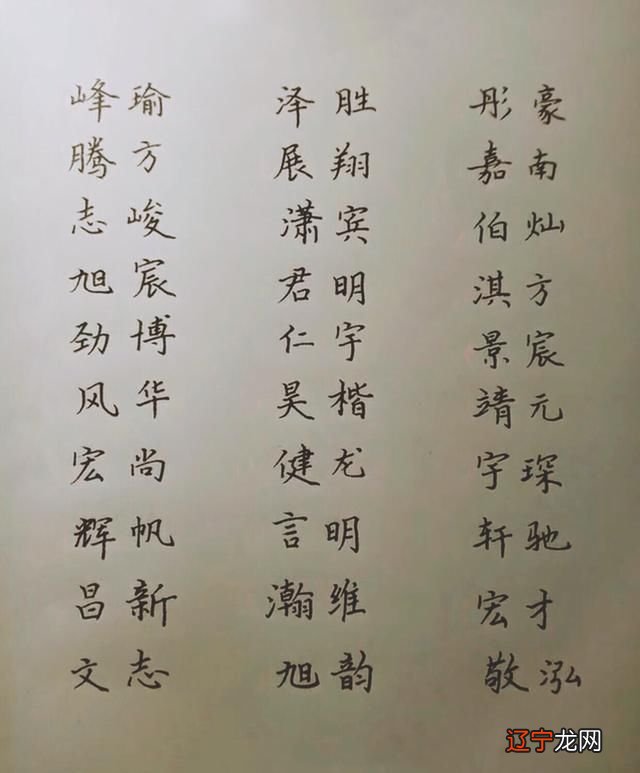 峰瑜 泽胜 彤豪
腾方 展翔 嘉南
志峻 潇宾 伯灿
旭宸 君明 淇方
劲博 仁宇 景宸
风华 昊楷 靖元
宏尚 健龙 宇琛
辉帆 言明 轩驰
昌新 瀚维 宏才
文志 旭韵 敬泓
辽宁龙网